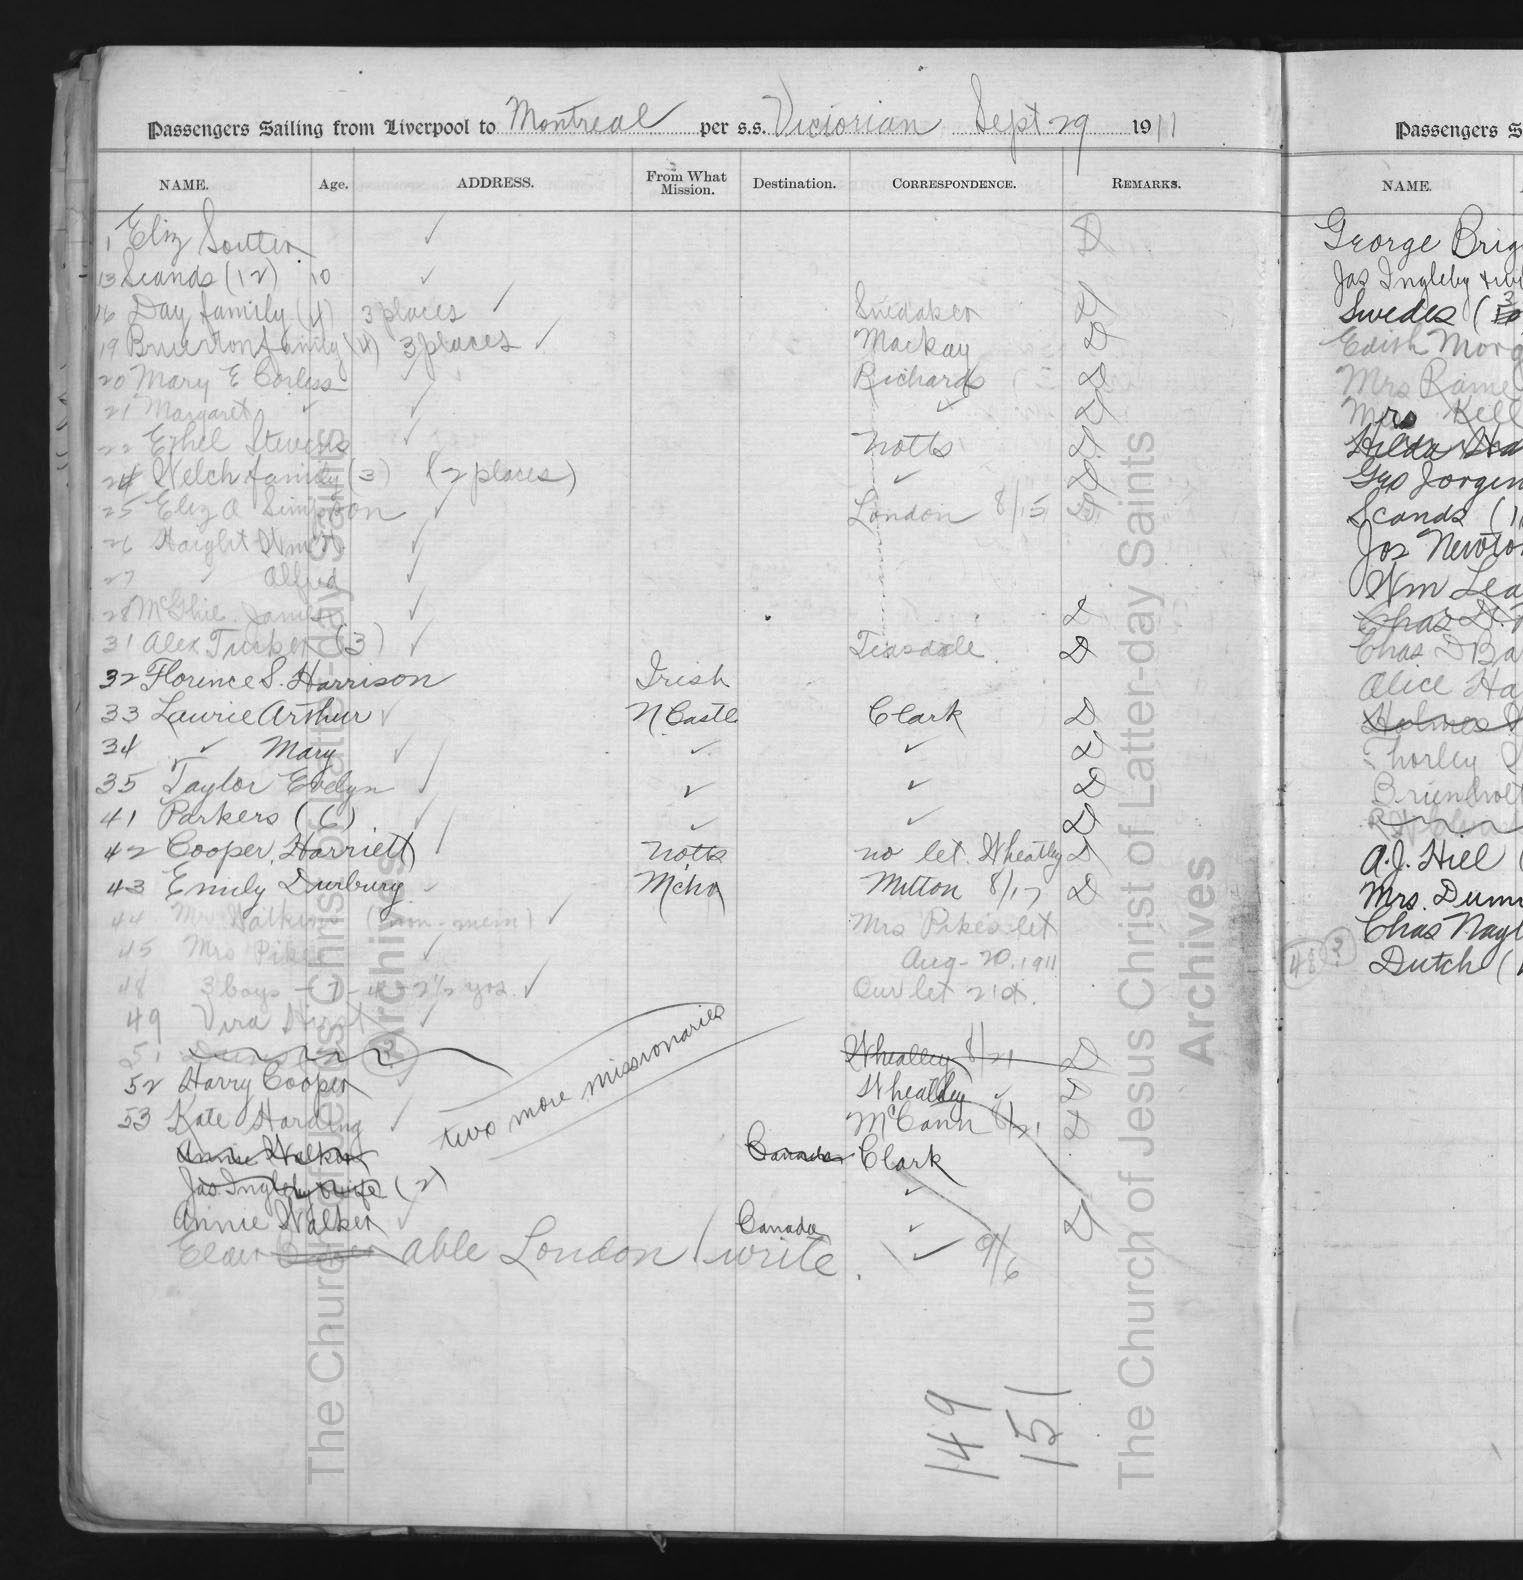 Passengers Sailing from Liverpool to Montreal per s.s. Victorian Sept 29 1911
NAME. Age. ADDRESS. From What Mission. Destination. CORRESPONDENCE. REMARKS.
1 Eliz Soutter ✓ D
13 Scands (12) 10 ✓
16 Day family (4) 3 places ✓ Snedaker D
19 family (4) 3 places ✓ Mackay D
20 Mary E Corless ✓ Richards D
21 Margaret ✓ ✓ ✓ D
22 Ethel Stevens ✓ Notts D
24 Welch family (3) (2 places) ✓ D
25 Eliz A Simpson ✓ London 8/15 D
26 Haight Wm ✓
27 ✓ Alfred ✓
28 McGhie James ✓ D
31 Alex Tucker (3) ✓ Teasdale D
32 Florence S. Harrison Irish
33 Laurie Arthur ✓ N Castl Clark D
34 ✓ Mary ✓ ✓ ✓ D
35 Taylor Evelyn ✓ ✓ ✓ D
41 Parkers (6) ✓ ✓ ✓ D
42 Cooper, Harriett ✓ Notts no let. Wheatley D
43 Emily Durbury ✓ Mchr Mitton 8/17 D
44 Mrs Walker (non-mem) ✓ Mrs Pikes let
45 Mrs Pike ✓ Aug-20, 1911
48 3 boys - 7 - 4 - 2½ yrs. ✓ Our let 21st.
49 Vira Hirst ✓
51 (2) Wheatley 8/21 D
52 Harry Cooper ✓ Wheatley ✓ D
53 Kate Harding ✓ McCann 8/21 D
two more missionaries
Annie Walker Canada Clark
Jas Ingleby & wife (2) ✓
Annie Walker ✓ Canada ✓ D
Elder able London write. ✓ 9/6
149
151
The Church of Jesus Christ of Latter-day Saints
Archives
The Church of Jesus Christ of Latter-day Saints
Archives
Passengers S
NAME.
George Brig
Jas Ingleby & wi
Swedes (
Edith Morg
Mrs
Mrs Kell
Hilda
Geo Jorgen
Scands (1
Jos Newto
Wm Lea
Chas D.
Chas D Ba
Alice Ha
Holmes
Thorley
A.J. Hill (
Mrs. Dunn
Chas Nayl
48 2 Dutch (